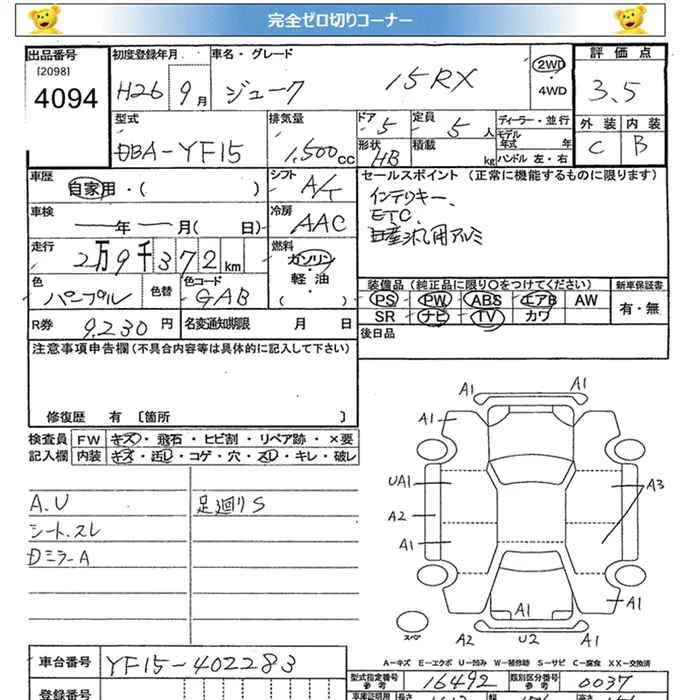 完全ゼロ切りコーナー
出品番号 初度登録年月 車名・グレード 評価点
[2098]
4094 H26 9月 ジューク 15RX 2WD 4WD 3.5
型式 排気量 ドア 定員 ディーラー・並行 外装 内装
DBA-YF15 1,500cc 5 5人 モデル年式 年 C B
形状 HB 積載 kg ハンドル 左・右
車歴 自家用・( ) シフト A/T セールスポイント (正常に機能するものに限ります)
車検 年 月( 日) 冷房 AAC
インテリキー、
ETC、
日産汎用アルミ
走行 2万9千372km 燃料 ガソリン・軽油・( )
色 パープル 色替 色コード GAB
装備品 (純正品に限り○をつけてください) 新車保証書
PS PW ABS エアB AW 有・無
SR ナビ TV カワ
R券 9,230円 名変通知期限 月 日
後日品
注意事項申告欄 (不具合内容等は具体的に記入して下さい)
修復歴 有 [箇所 ]
検査員 FW キズ・飛石・ヒビ割・リペア跡・×要
記入欄 内装 キズ・汚レ・コゲ・穴・スレ・キレ・破レ
A.U 足廻りS
シート.スレ
Dミラー A
A1 A1
A1 A1
UA1 A3
A2
A1
A1 A1
スペア A2 U2 A1
A-キズ E-エクボ U-凹み W-補修跡 S-サビ C-腐食 XX-交換済
車台番号 YF15-402283
型式指定番号 参考 16492 類別区分番号 参考 0037
登録番号
車庫証明用 長さ